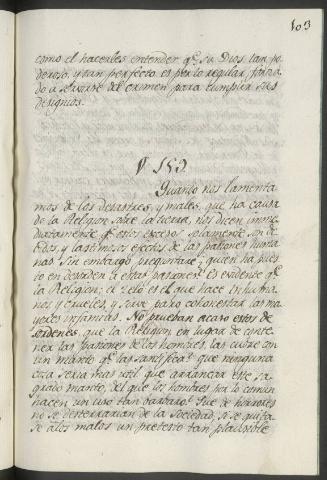 103
como el hacerles entender qe. su Dios tan po-
deroso, y tan perfecto es por lo regular, forza-
do a servirse del crimen para cumplir sus
designios.
§ 153.
Quando nos lamenta-
mos de los desastres, y males, que ha causa-
do la Religion sobre la tierra, nos dicen inme-
diatamente qe. estos excesos solamente son
y lastimosos efectos de las pasiones huma-
nas. Sin embargo preguntaré; quien ha pues-
to en estas pasiones? es evidente qe.
la Religion; el zelo es el que hace inhuma-
nos y crueles, y sirve para colorestar las ma-
yores infamias. No prueban acaso estos de-
sordenes, que la Religion en lugar de conte-
ner las pasiones de los hombres, las cubre con
un manto qe. las santifica? que ninguna
cosa seria mas util que arrancar este sa-
grado manto, del que los hombres por lo comun
hacen un uso tan barbaro? Que de horrores
no se desterrarian de la Sociedad, si se quita-
se a los malos un pretexto tan plausible